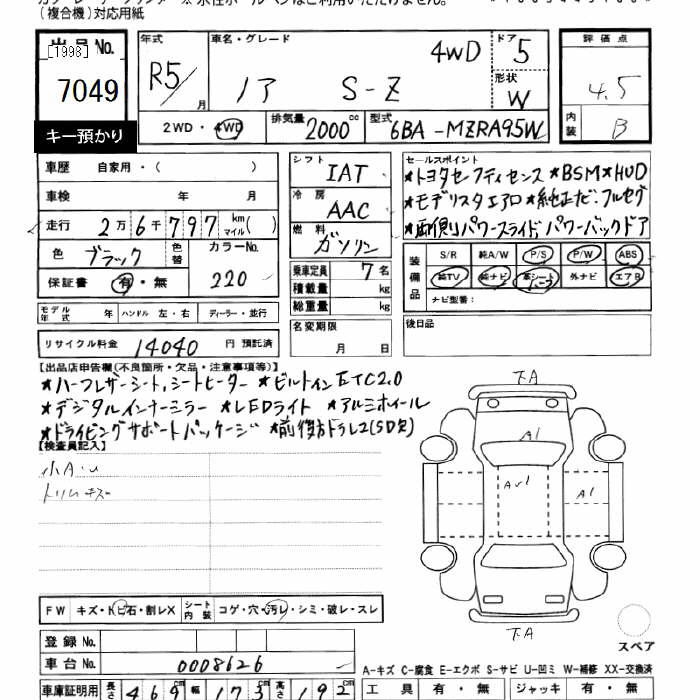 (複合機)対応用紙
出品No.
[1998]
7049
キー預かり
年式 R5/ 月
車名・グレード 4WD
ノア S-Z
ドア 5
形状 W
評価点 4.5
内装 B
2WD・4WD 排気量 2000cc 型式 6BA-MZRA95W
車歴 自家用・( )
車検 年 月
走行 2万6千797km マイル( )
色 ブラック 色替 カラーNo. 220
保証書 有・無
モデル年式 年 ハンドル 左・右 ディーラー・並行
リサイクル料金 14040 円 預託済
シフト IAT
冷房 AAC
燃料 ガソリン
乗車定員 7名
積載量 kg
総重量 kg
名変期限
月 日
セールスポイント
★トヨタセーフティセンス ★BSM★HUD
★モデリスタエアロ ★純正ナビ・フルセグ
★両側パワースライド パワーバックドア
装備品
S/R 純A/W P/S P/W ABS
純TV 純ナビ 革シート ハーフ 外ナビ エアB
ナビ型番:
後日品
【出品店申告欄(不良箇所・欠品・注意事項等)】
★ハーフレザーシート,シートヒーター ★ビルトインETC2.0
★デジタルインナーミラー ★LEDライト ★アルミホイール
★ドライビングサポートパッケージ ★前後方ドラレコ(SD欠)
【検査員記入】
小A・U
トリムキズ
下A
A1
AU1
A1
下A
スペア
FW キズ・トビ石・割レX シート内装 コゲ・穴・汚レ・シミ・破レ・スレ
登録No.
車台No. 0008626
A-キズ C-腐食 E-エクボ S-サビ U-凹ミ W-補修 XX-交換済
車庫証明用 長さ 469cm 幅 173cm 高さ 192cm
工具 有・無 ジャッキ 有・無